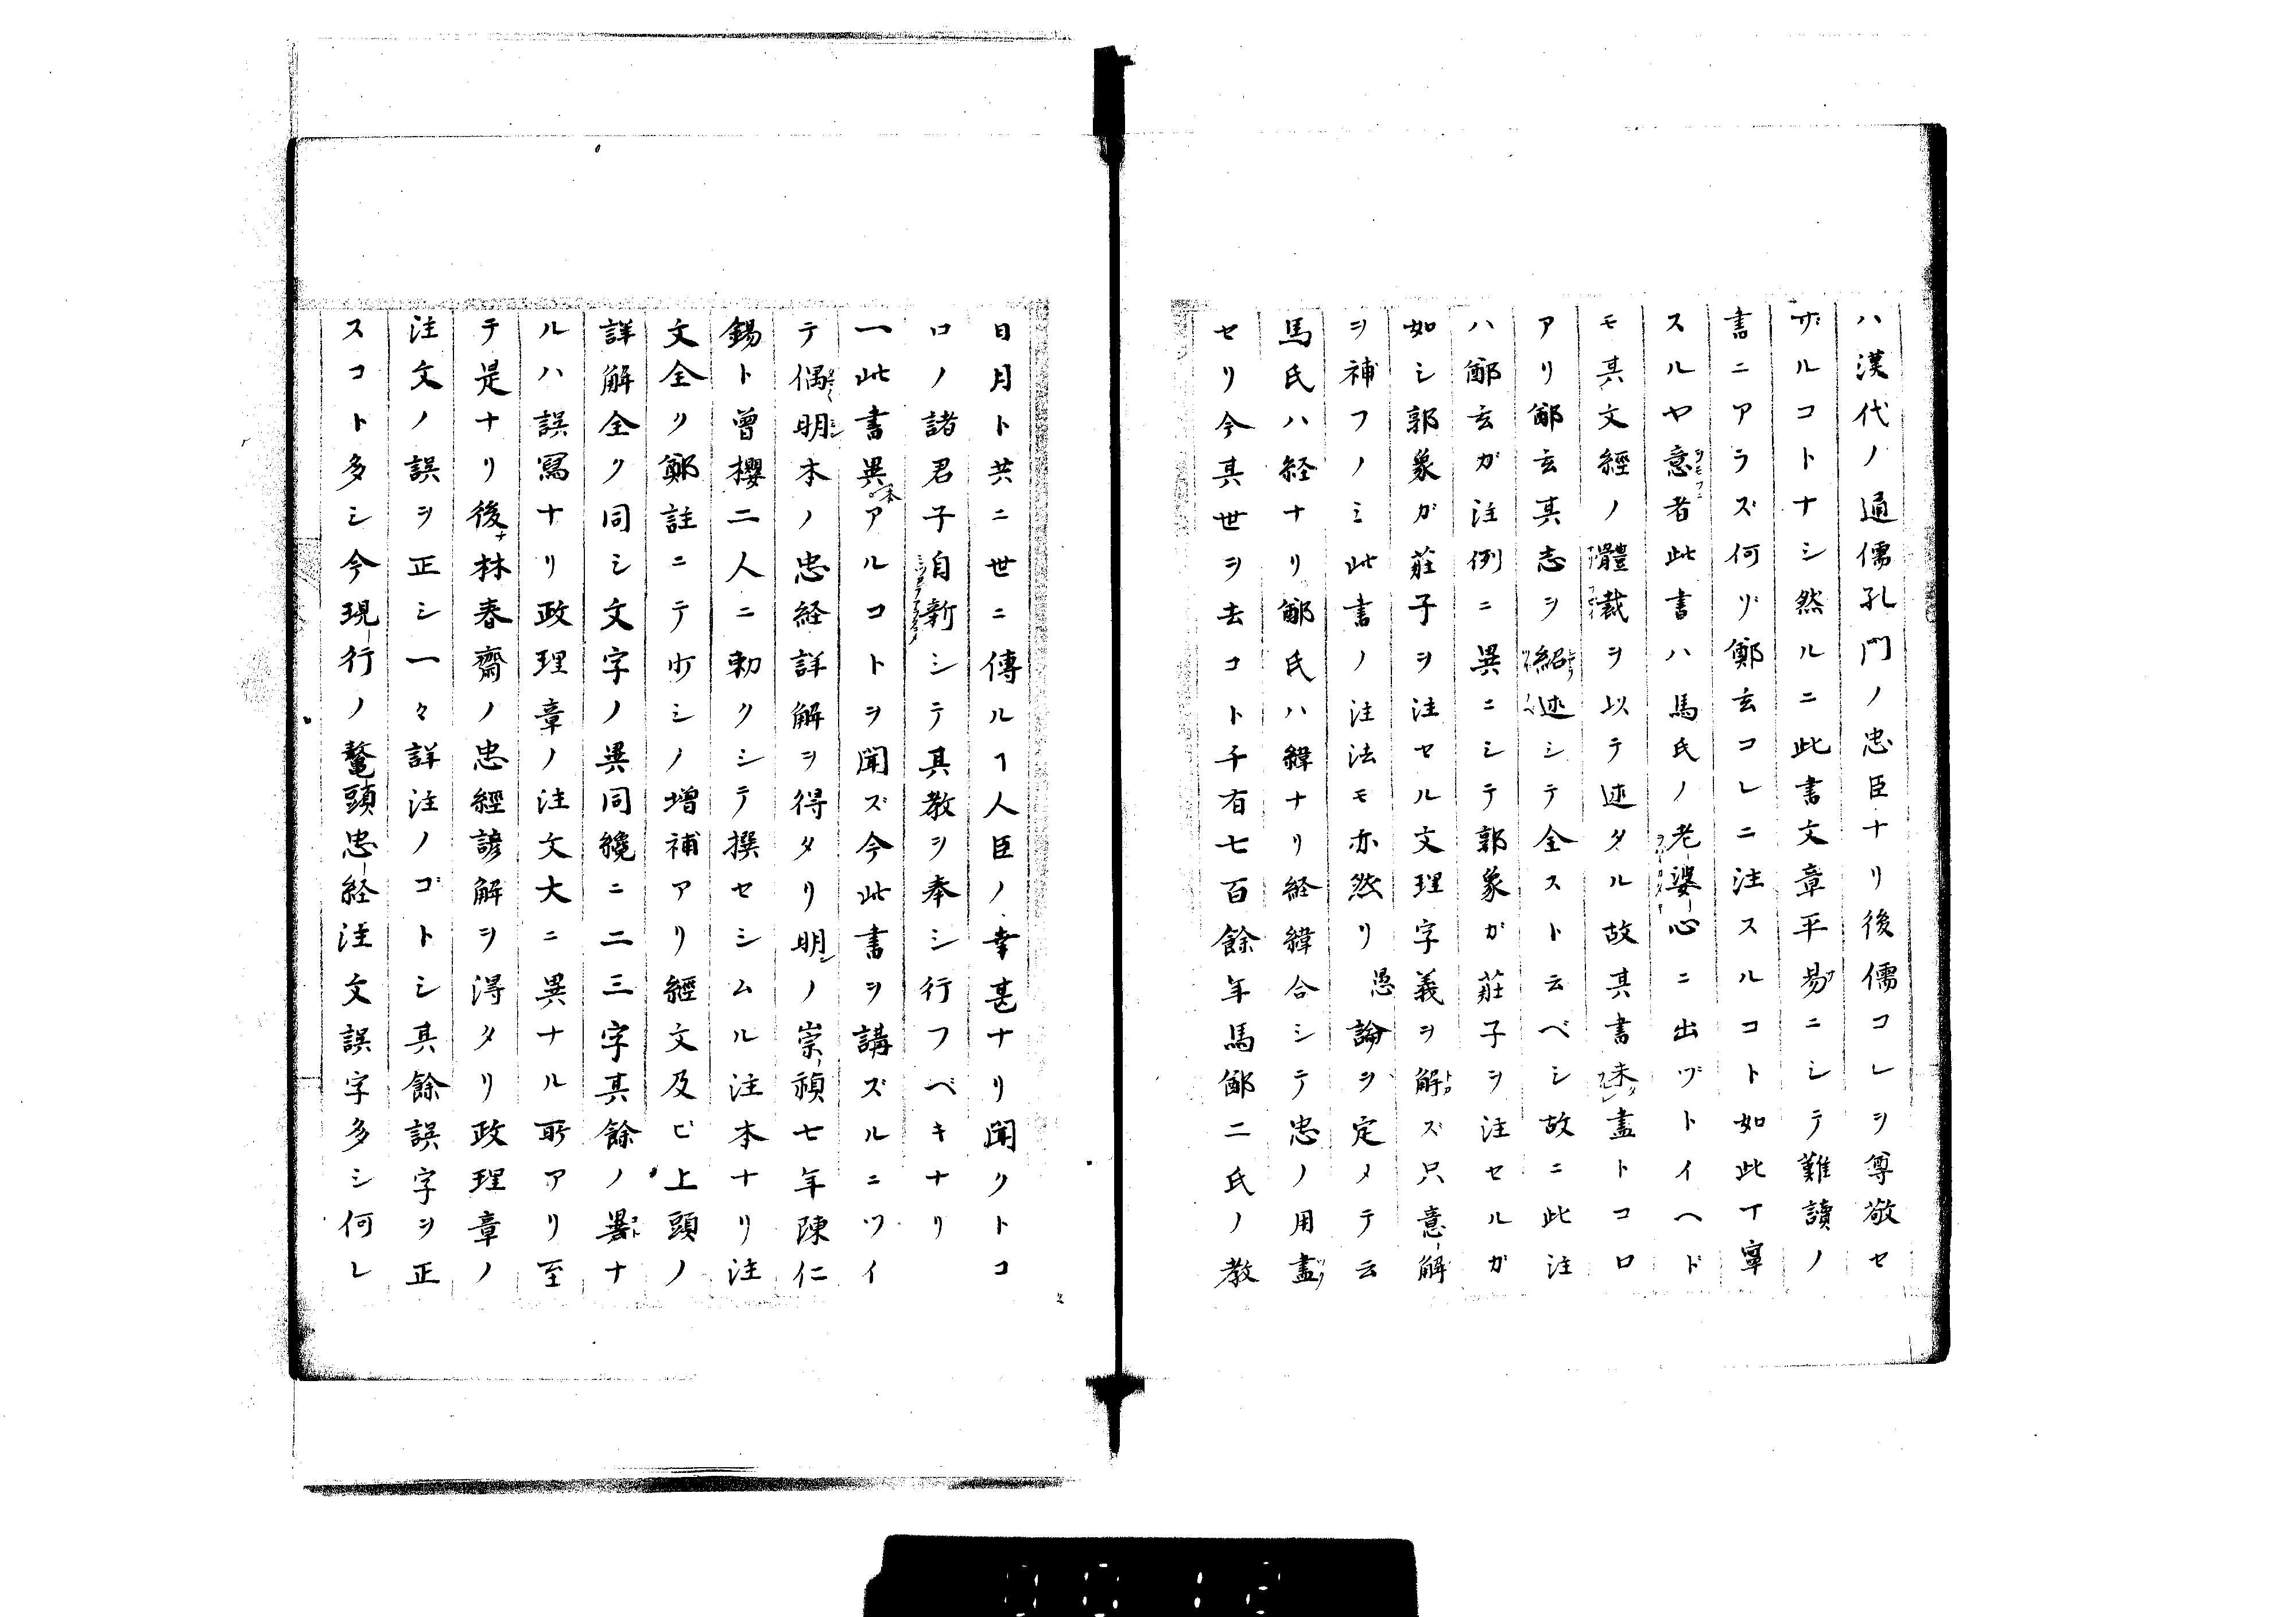 ハ漢代ノ通儒孔門ノ忠臣ナリ後儒コレヲ尊敬セ
ザルコトナシ然ルニ此書文章平易ニシテ難讀ノ
書ニアラズ何ゾ鄭玄コレニ注スルコト如此丁寧
スルヤ意者此書ハ馬氏ノ老婆心ニ出ヅトイヘド
モ其文經ノ體裁ヲ以テ述タル故其書未盡トコロ
アリ鄭玄其志ヲ紹述シテ全スト云ベシ故ニ此注
ハ鄭玄ガ注例ニ異ニシテ郭象ガ莊子ヲ注セルガ
如シ郭象ガ莊子ヲ注セル文理字義ヲ解ズ只意解
ヲ補フノミ此書ノ注法モ亦然リ愚論ヲ定メテ云
馬氏ハ経ナリ鄭氏ハ緯ナリ経緯合シテ忠ノ用盡
セリ今其世ヲ去コト千有七百餘年馬鄭二氏ノ教
日月ト共ニ世ニ傳ルヿ人臣ノ幸甚ナリ聞クトコ
ロノ諸君子自新シテ其教ヲ奉シ行フベキナリ
一此書異本アルコトヲ聞ズ今此書ヲ講ズルニツイ
テ偶明本ノ忠経詳解ヲ得タリ明ノ崇禎七年陳仁
錫ト曾櫻二人ニ勅クシテ撰セシムル注本ナリ注
文全ク鄭註ニテ少シノ増補アリ經文及ビ上頭ノ
詳解全ク同シ文字ノ異同纔ニ二三字其餘ノ異ナ
ルハ誤寫ナリ政理章ノ注文大ニ異ナル所アリ至
テ是ナリ後林春齋ノ忠經諺解ヲ淂タリ政理章ノ
注文ノ誤ヲ正シ一々詳注ノゴトシ其餘誤字ヲ正
スコト多シ今現行ノ鼇頭忠経注文誤字多シ何レ